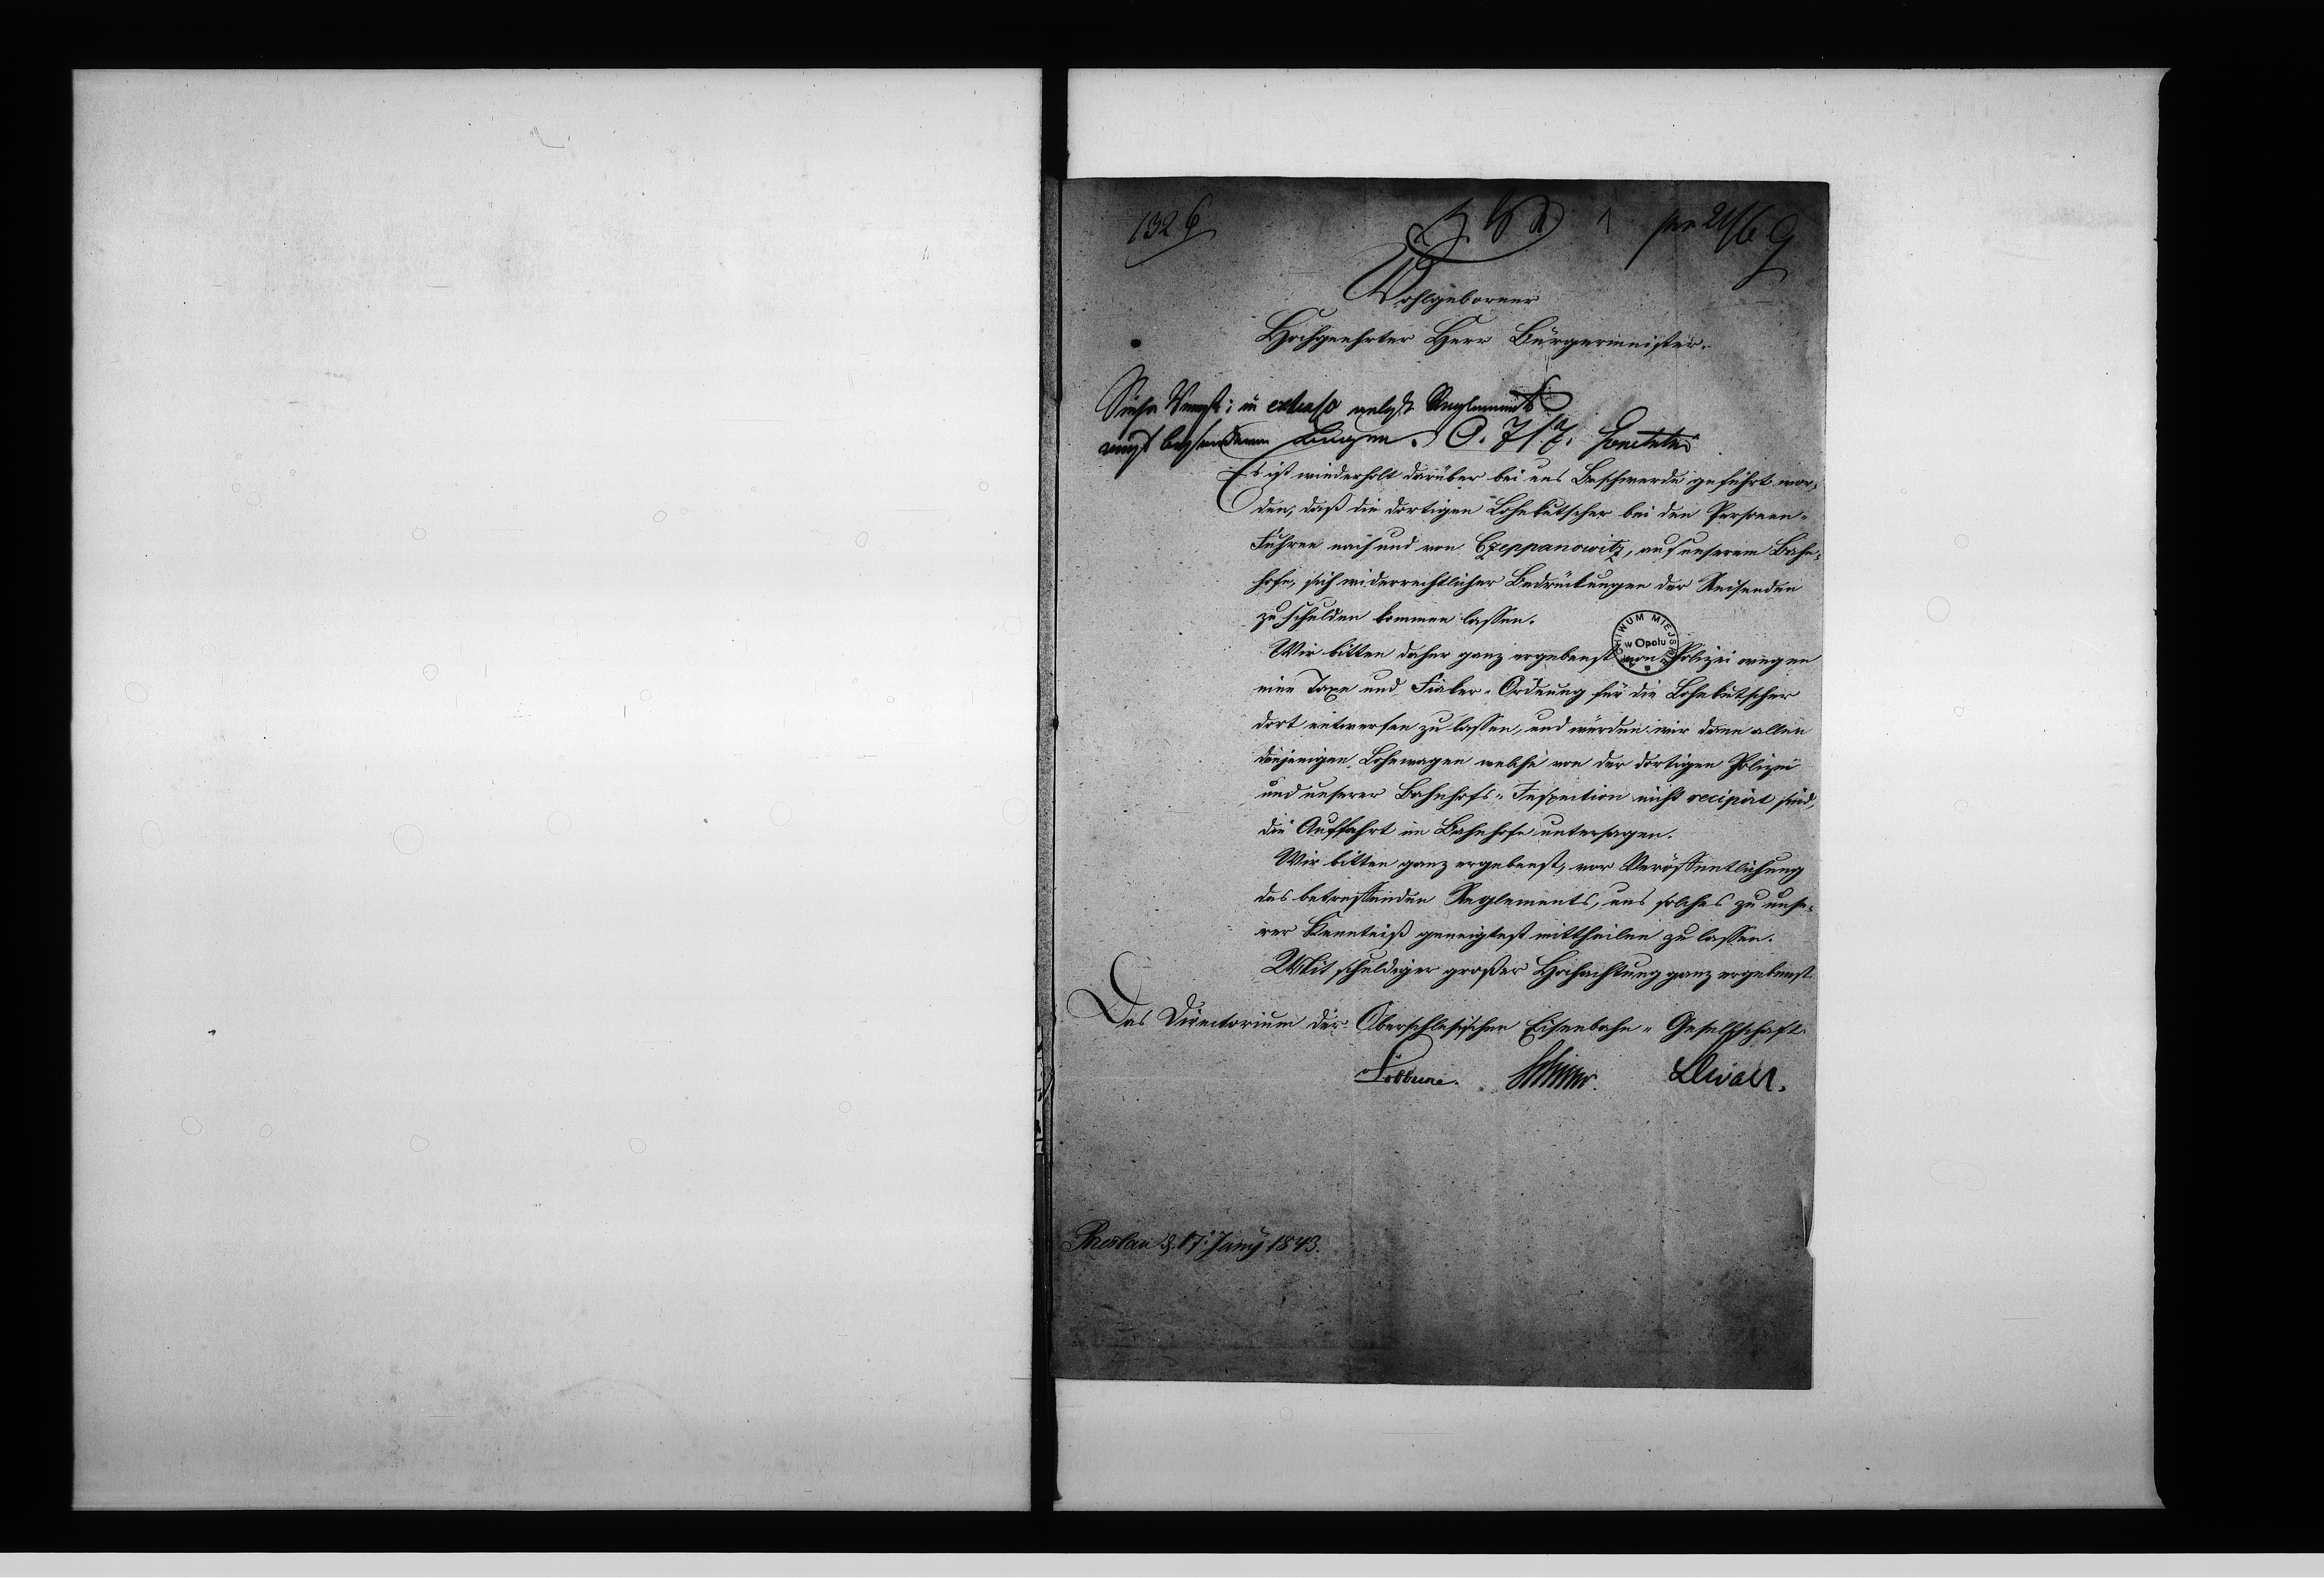 1326
1
pr 21/6 G
Wohlgeborner
Hochgeehrter Herr Bürgermeister.
in extenso nebst Reglement
Es ist wiederholt darüber bei uns Beschwerde geführt wor-
den, daß die dortigen Lohnkutscher bei den Personen-
Fuhren nach und von Czeppanowitz, auf unserem Bahn-
hofe, sich widerrechtlicher Bedrückungen der Reisenden
zu schulden kommen lassen.
ARCHIWUM MIEJSKIE w Opolu
Wir bitten daher ganz ergebenst von Polizei wegen
eine Taxe und Fiaker-Ordnung für die Lohnkutscher
dort entwerfen zu lassen, und würden wir dann allen
denjenigen Lohnwagen welche von der dortigen Polizei
und unserer Bahnhofs-Inspection nicht recipirt sind,
die Auffahrt im Bahnhofe untersagen.
Wir bitten ganz ergebenst, vor Veröffentlichung
des betreffenden Reglements, uns solches zu unse-
rer Kenntniß geneigtest mittheilen zu lassen.
Mit schuldiger großer Hochachtung ganz ergebenst
Das Directorium der Oberschlesischen Eisenbahn-Gesellschaft.
Lewald.
Breslau d. 17. Juny 1843.